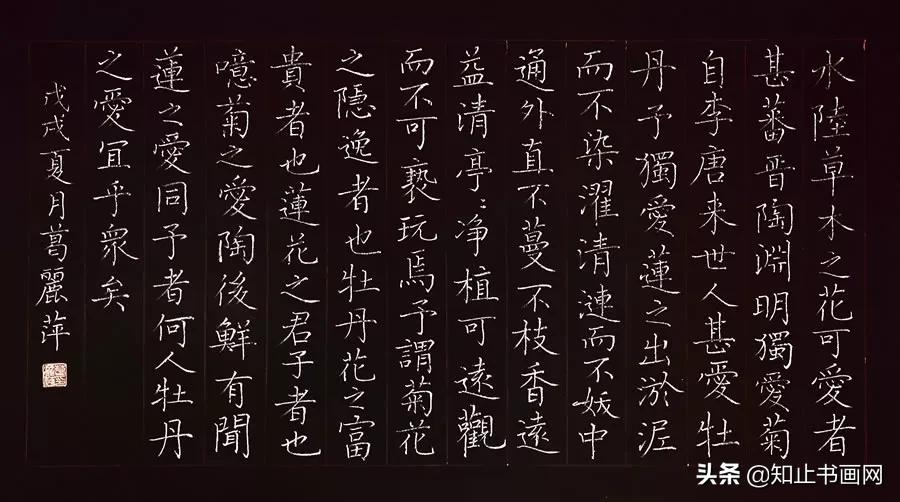 水陸草木之花可愛者
甚蕃晋陶淵明獨愛菊
自李唐来世人甚愛牡
丹予獨愛蓮之出淤泥
而不染濯清漣而不妖中
通外直不蔓不枝香遠
益清亭〻净植可遠觀
而不可褻玩焉予謂菊花
之隱逸者也牡丹花之富
貴者也蓮花之君子者也
噫菊之愛陶後鮮有聞
蓮之愛同予者何人牡丹
之愛宜乎衆矣
戊戌夏月葛麗萍
头条@知止书画网